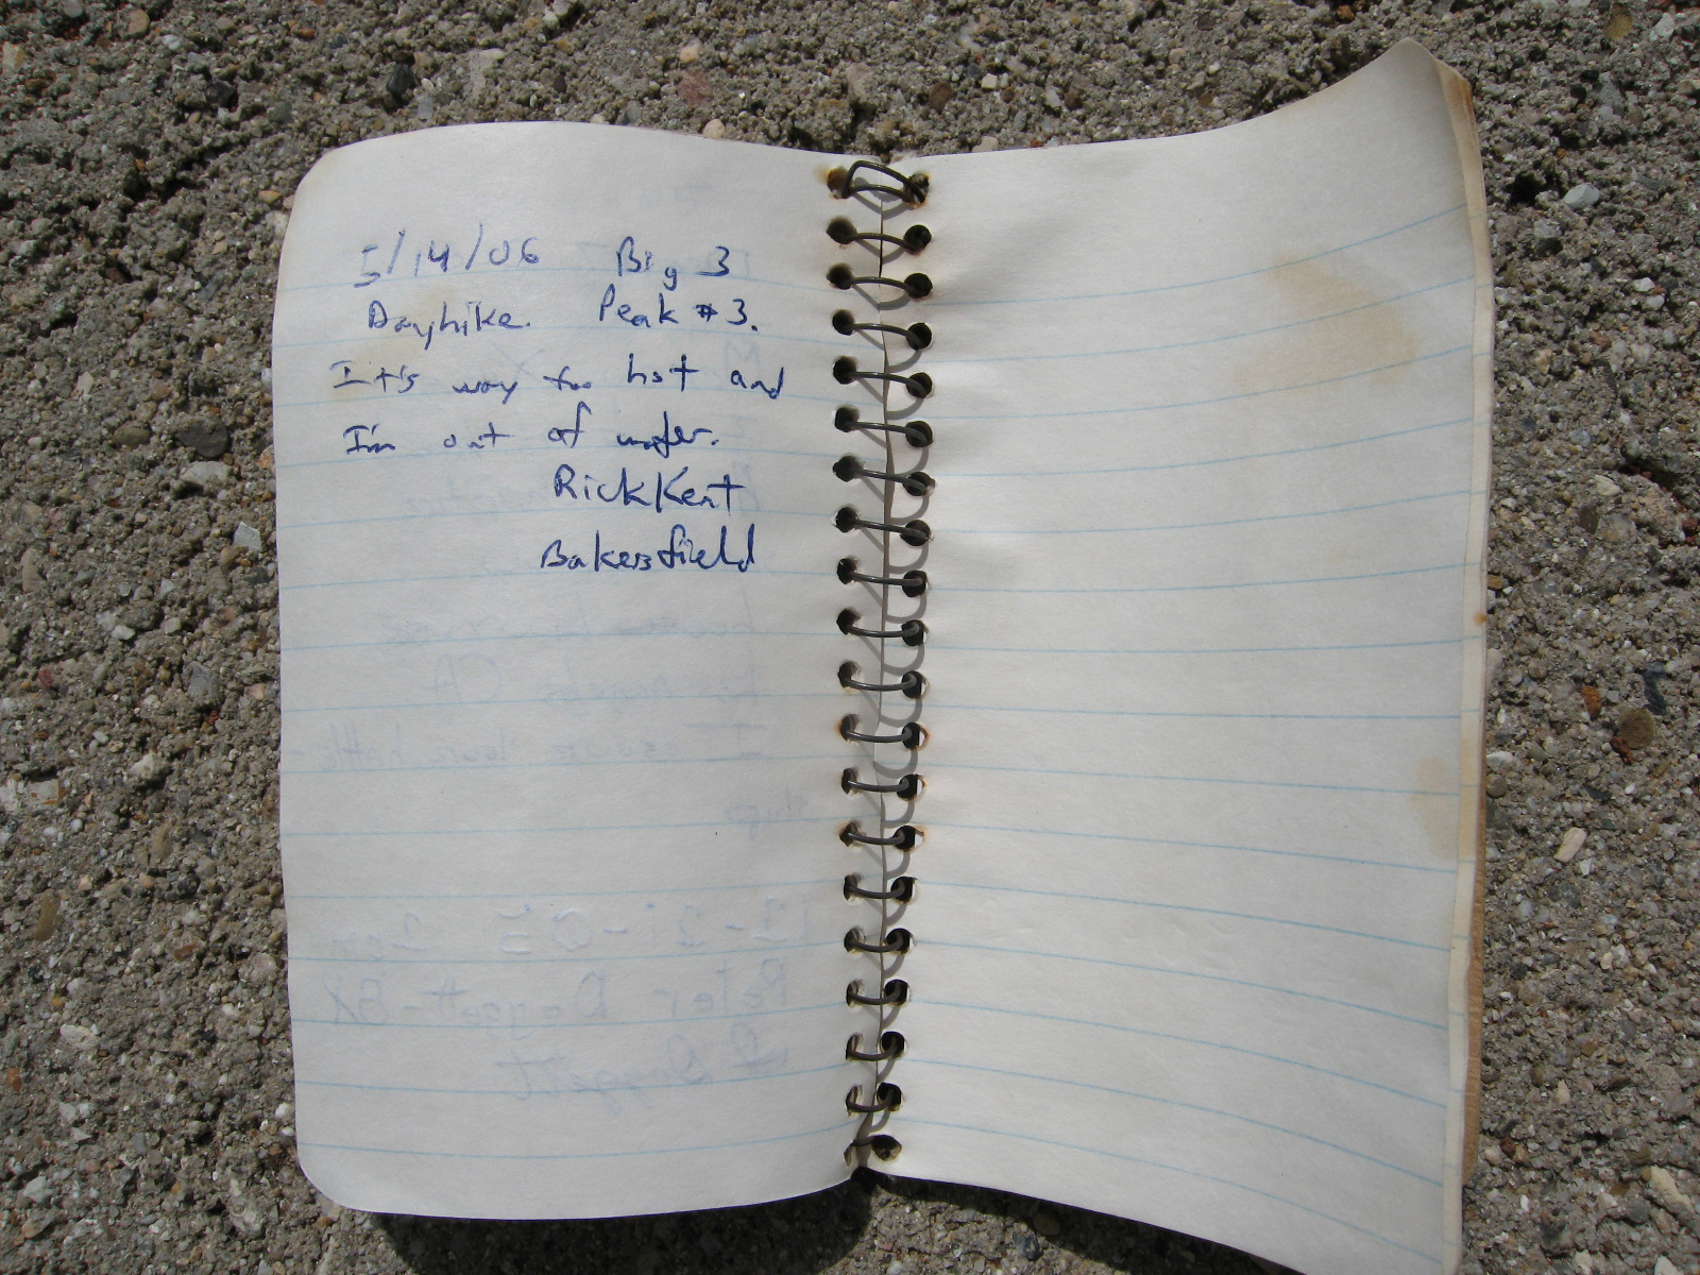 5/14/06 Big 3
Dayhike. Peak #3.
It's way too hot and
I'm out of water.
Rick Kent
Bakersfield